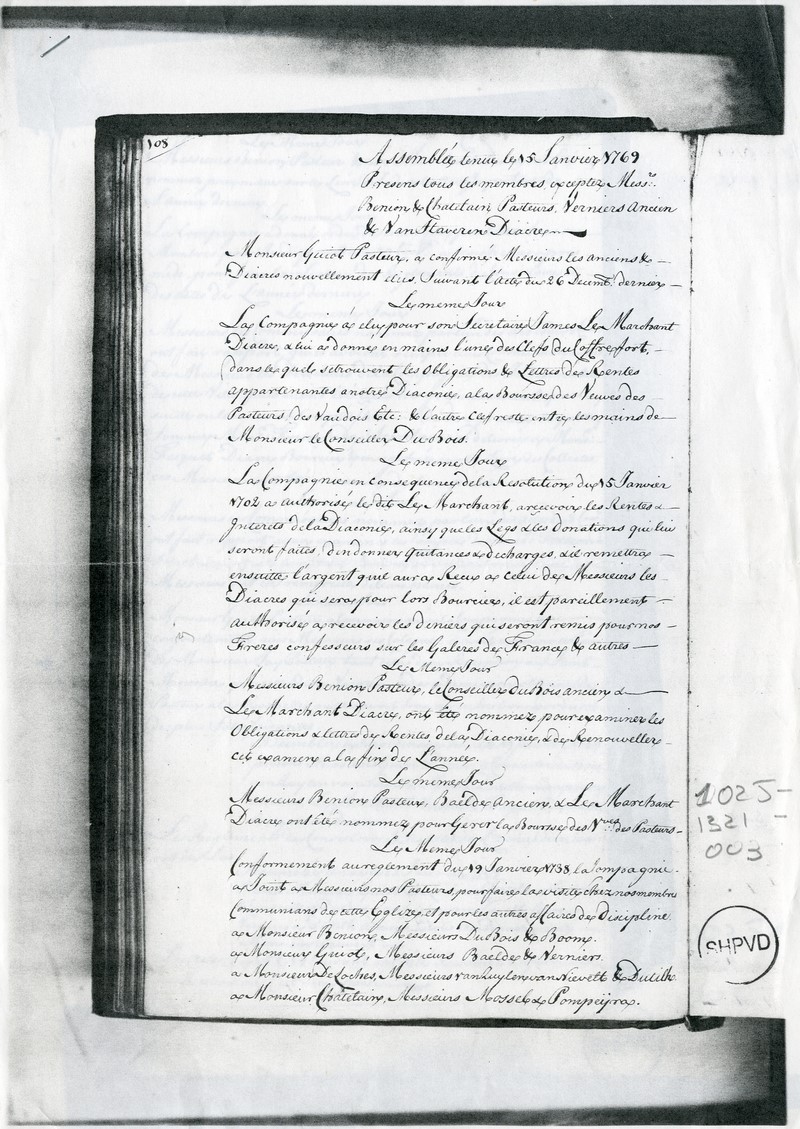 108
Assemblée tenue le 15 Janvier 1769
Presens tous les membres, exceptez Mess:rs
Benion & Chatelain Pasteurs, Verniers Ancien
& Van Staveren Diacre
Monsieur Guiot Pasteur, a confirmé Messieurs les Anciens &
Diacres nouvellement elus, Suivant l'Acte du 26 Decemb: dernier
Le meme Jour
La Compagnie á elu pour son Secretaire James Le Marchant
Diacre, & lui a donné en mains l'une des Clefs du Coffre fort,
dans lequel se trouvent les Obligations & Lettres de Rentes
appartenantes a notre Diaconie, a la Boursse des Veuves des
Pasteurs, des Vaudois Etc: & l'autre Clef reste entre les mains de
Monsieur le Conseiller Du Bois.
Le meme Jour
La Compagnie en consequence de la Resolution du 15 Janvier
1702 a authorisé le dit Le Marchant, a recevoir les Rentes &
Interets de la Diaconie, ainsy que les Legs & les donations qui lui
seront faites, d'en donner quitances & decharges, & il remettra
ensuitte l'argent qu'il aura Reçu a celui de Messieurs les
Diacres qui sera pour lors Boursier, il est pareillement
authorisé a recevoir les deniers qui seront remis pour nos
Freres confesseurs sur les Galeres de France & autres
Le Meme Jour
Messieurs Benion Pasteur, le Conseiller du Bois ancien &
Le Marchant Diacre, ont été nommez pour examiner les
Obligations & lettres de Rentes, de la Diaconie, & de Renouveller
cet examen a la fin de L'année.
Le meme Jour
Messieurs Benion Pasteur, Baelde Ancien, & Le Marchant
Diacre ont été nommez pour Gerer la Boursse des Vves des Pasteurs
Le Meme Jour
Conformement au reglement du 19 Janvier 1738 la Compagnie
a Joint a Messieurs nos Pasteurs, pour faire la visite chez nos membres
Communians de cette Eglize, et pour les autres affaires de Discipline
a Monsieur Benion, Messieurs Du Bois & Boom.
a Monsieur Guiot, Messieurs Baelde & Verniers.
a Monsieur De Loches, Messieurs van Zuylen van Nievelt & Dutilh
a Monsieur Châtelain, Messieurs Mossel & Pompeyra.
1025-
1321-
003
SHPVD